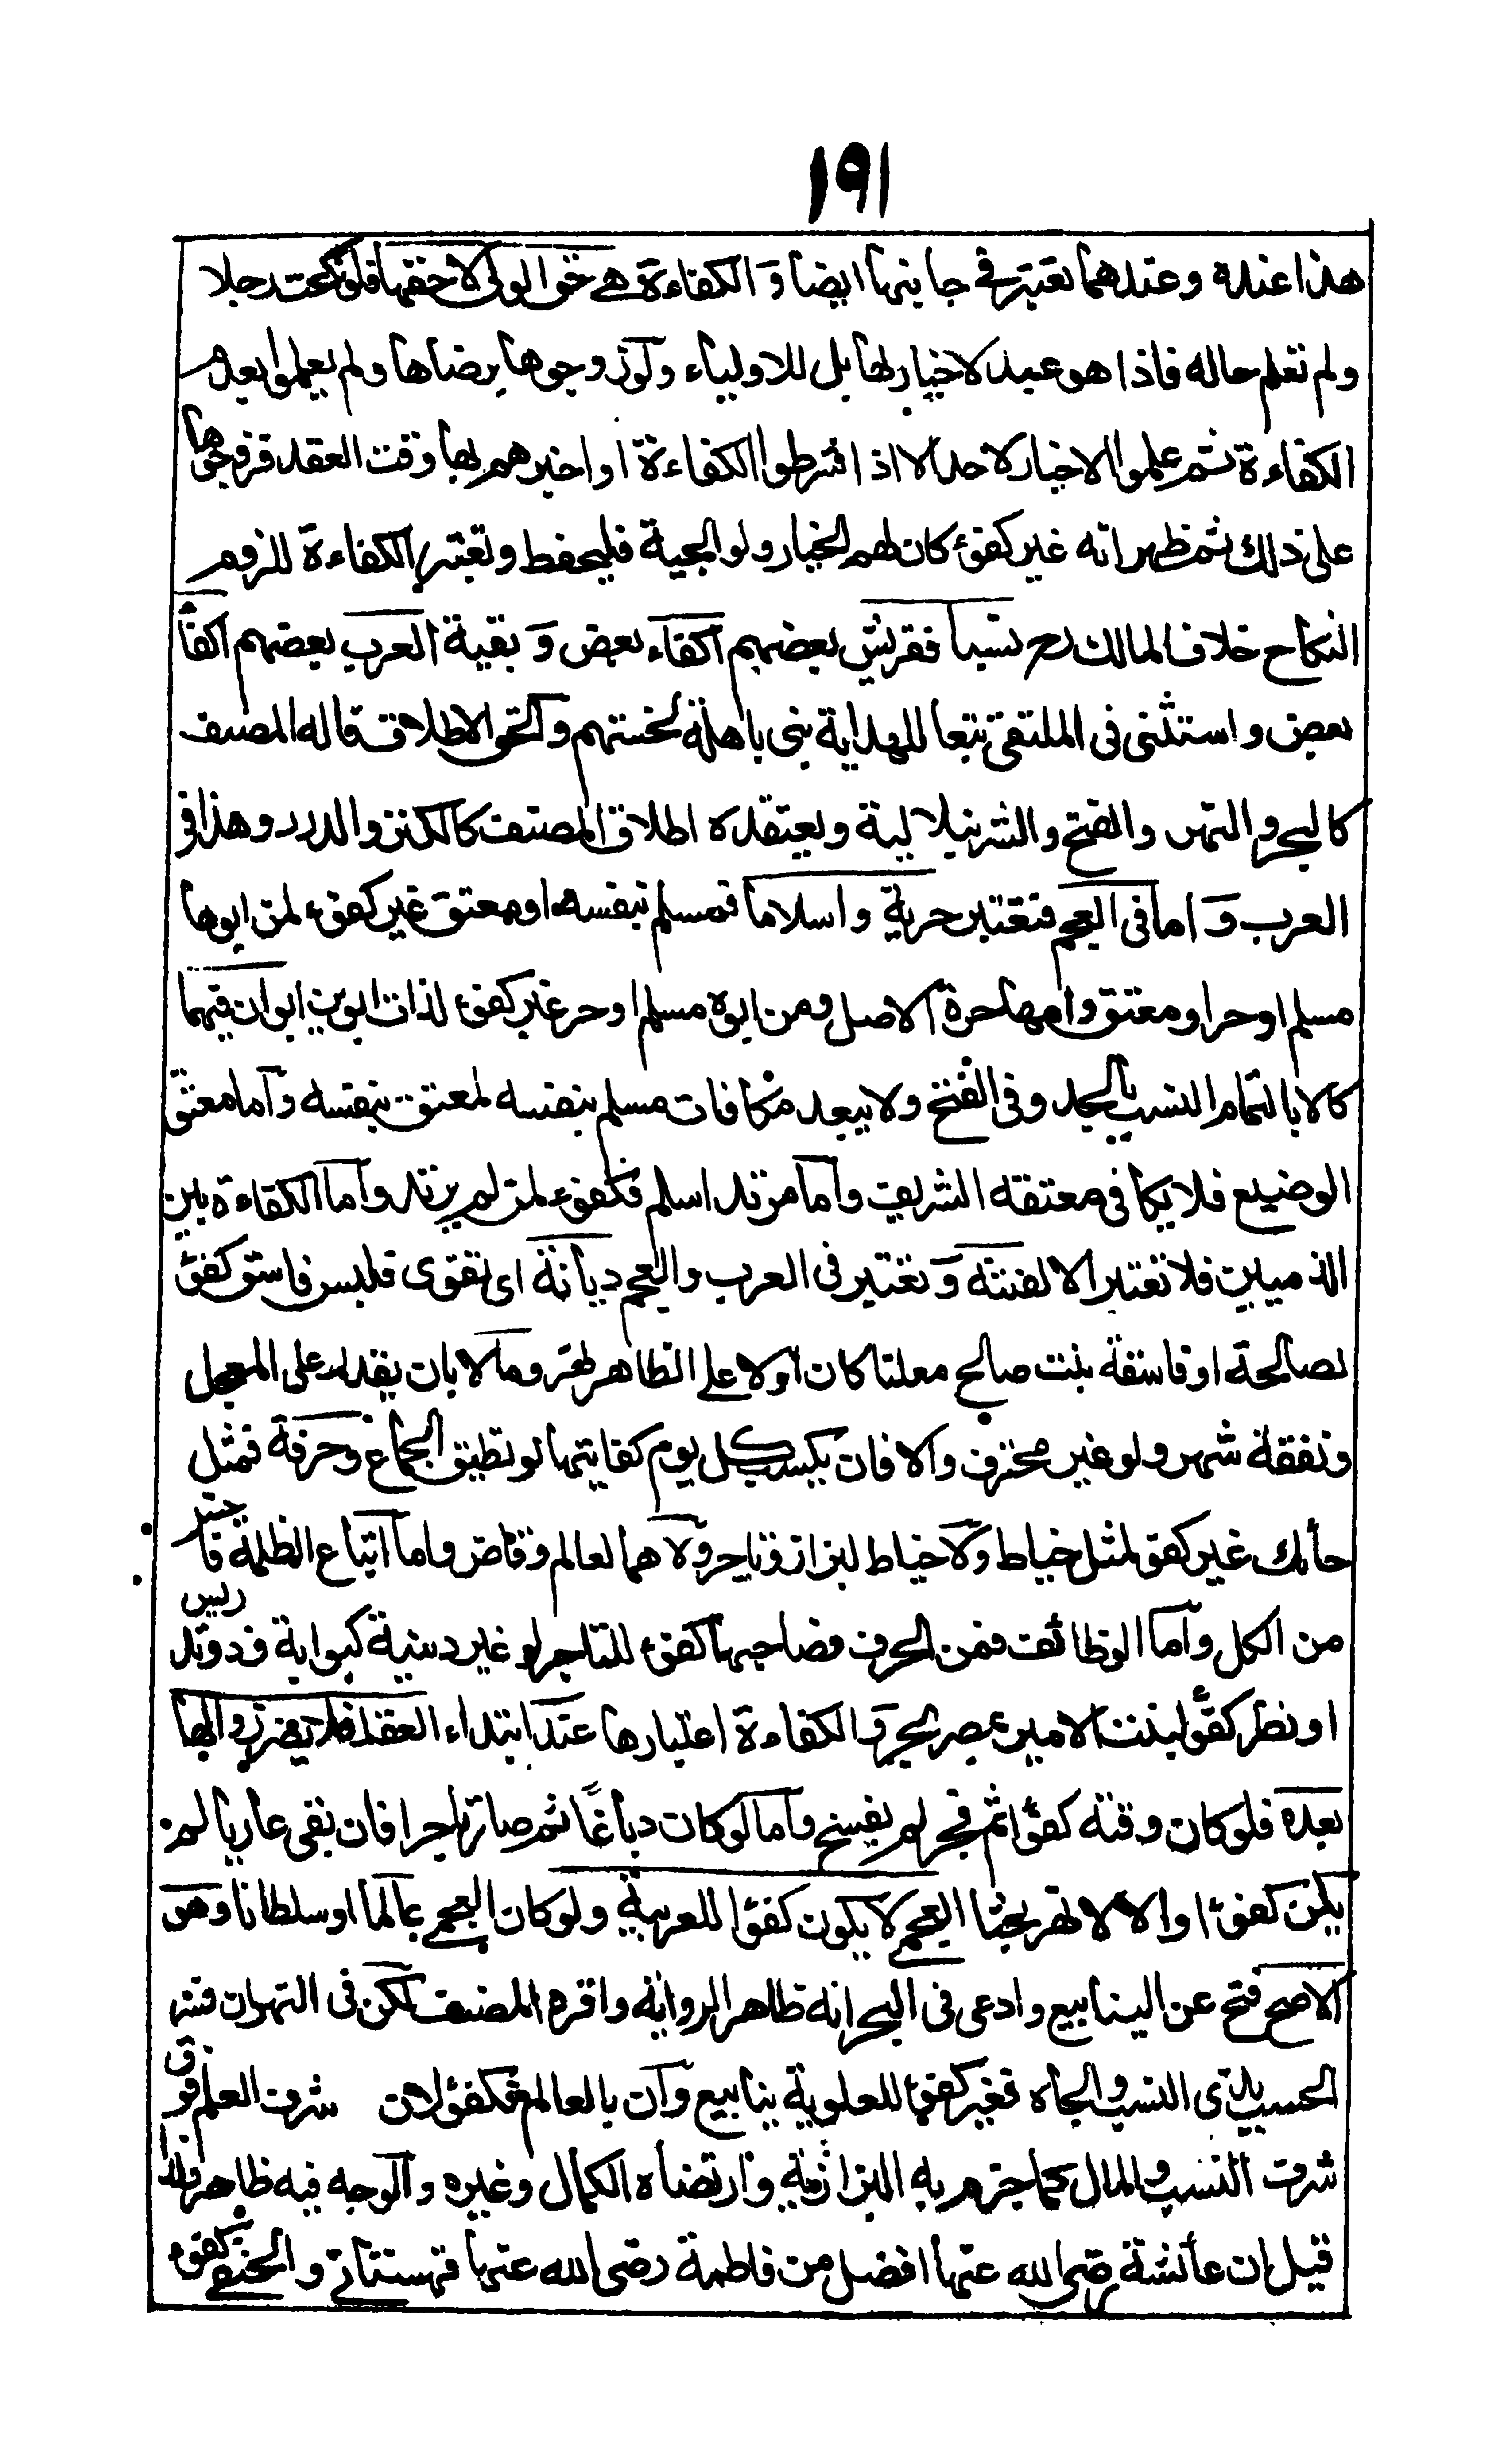 ١٩١
هذا عنده وعندهما تعتبر في جانبها ايضا و الكفاءة هي حق الولي لا حقها فلو نكحت رجلا
ولم تعلم حاله فاذا هو عبد لا خيار لها بل للاولياء ولو زوجوها برضاها ولم يعلموا بعدم
الكفاءة ثم علموا لا خيار لاحد الا اذا شرطوا الكفاءة او اخبرهم بها وقت العقد فزوجوها
على ذلك ثم ظهر انه غير كفؤ كان لهم الخيار ولوالجية فليحفظ وتعتبر الكفاءة للزوم
النكاح خلافا لمالك رح نسبا فقريش بعضهم اكفاء بعض و بقية العرب بعضهم اكفأ
بعض واستثنى في الملتقى تبعا للهداية بني باهلة لخستهم والحق الاطلاق قاله المصنف
كالبحر والنهر والفتح والشرنبلالية ويعتقده اطلاق المصنف كالكنز والدرر وهذا في
العرب و اما في العجم فتعتبر حرية واسلاما فمسلم بنفسه او معتق غير كفؤ لمن ابوها
مسلم او حر او معتق وامها حرة الاصل ومن ابوه مسلم او حر غير كفؤ لذات ابوين ابوان فيهما
كالابا لتمام النسب بالجد وفي الفتح ولا يبعد مكافات مسلم بنفسه لمعتق بنفسه واما معتق
الوضيع فلا يكافي معتقه الشريف واما مرتد اسلم فكفؤ لمن لم يرتد واما الكفاءة بين
الذميين فلا تعتبر الا لفتنة و تعتبر في العرب والعجم ديانة اي تقوى فليس فاسق كفؤ
لصالحة او فاسقة بنت صالح معلنا كان اولا على الظاهر نهر ومالا بان يقدر على المعجل
ونفقة شهر ولو غير محترف والا فان يكسب كل يوم كفايتها لو تطيق الجماع وحرفة فمثل
حائك غير كفؤ لمثل خياط ولا خياط لبزاز وتاجر ولا هما لعالم وقاض واما اتباع الظلمة فاخس
من الكل واما الوظائف فمن الحرف فصاحبها كفؤ للتاجر لو غير دنيئة كبوابة وذو تدريس
او نظر كفؤ لبنت الامير بمصر بحر و الكفاءة اعتبارها عند ابتداء العقد فلا يضر زوالها
بعده فلو كان وقته كفؤا ثم فجر لم يفسخ واما لو كان دباغا ثم صار تاجرا فان بقى عارها لم
يكن كفؤا والا لا نهر بحثا العجمي لا يكون كفؤا للعربية ولو كان العجمي عالما او سلطانا وهو
الاصح فتح عن الينابيع وادعى في البحر انه ظاهر الرواية واقره المصنف لكن في النهر ان فسر
الحسيب بذي النسب والجاه فغير كفؤ للعلوية ينابيع وان بالعالم فكفؤ لان شرف العلم فوق
شرف النسب والمال كما جزم به البزازية وارتضاه الكمال وغيره والوجه فيه ظاهر ولذا
قيل ان عائشة رضى الله عنها افضل من فاطمة رضى الله عنها قهستاني والحنفي كفؤ